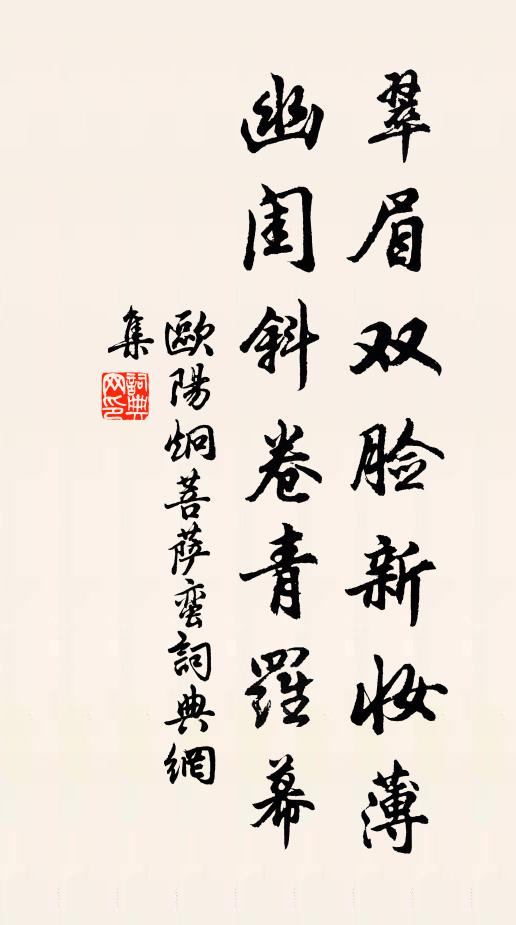 翠眉双脸新妆薄
幽闺斜卷青羅幕
歐陽炯菩萨蛮詞典網
集
詞典
网印